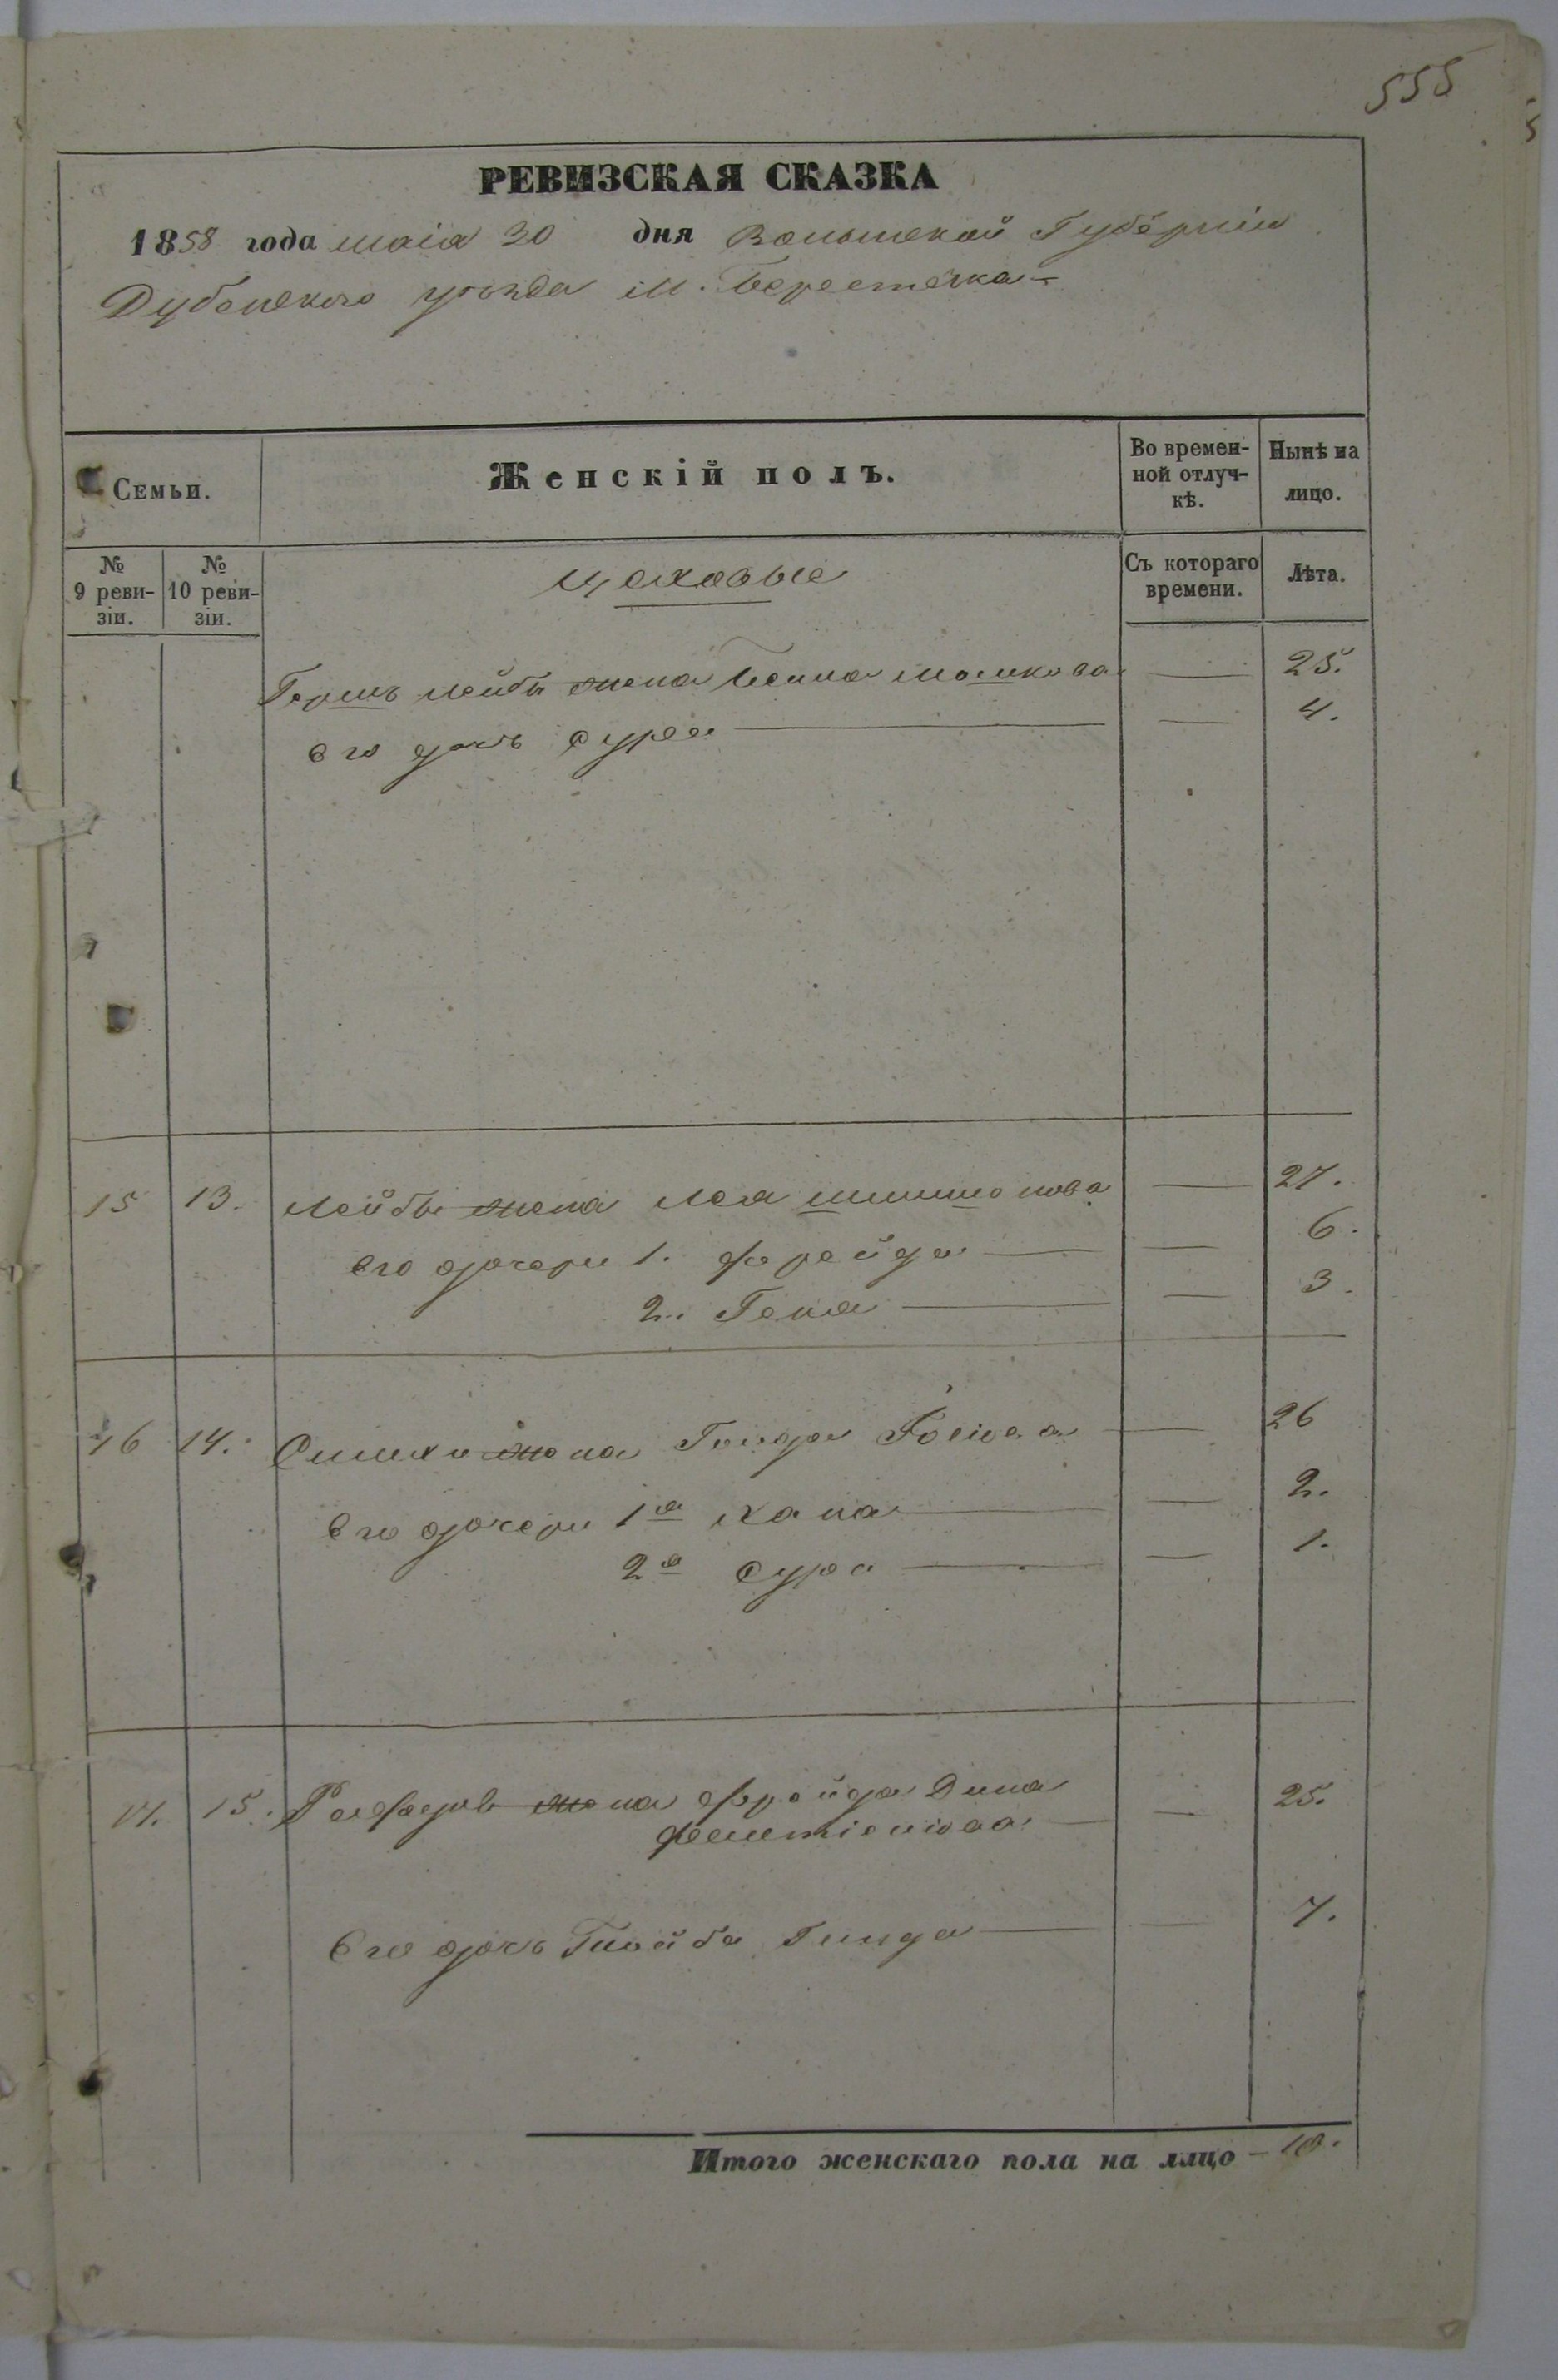 555
РЕВИЗСКАЯ СКАЗКА
1858 года маія 30 дня Волынской Губерніи
Дубенского уѣзда м. Берестечка
Семьи.
Женскій полъ.
Во времен-
ной отлуч-
кѣ.
Нынѣ на
лицо.
№
9 реви-
зіи.
№
10 реви-
зіи.
Цеховые
Съ котораго
времени.
Лѣта.
Гершъ Лейбы жена Мошкова — 25.
его дочь Сура — 4.
15 13. Лейбы жена Лея — 27.
его дочери 1. Фрейда — 6.
2. Геня — 3.
16 14. Симхи жена — 26
Его дочери 1я Хана — 2.
2я Сура — 1.
17. 15. жена Фрейда Дина
— 25.
Его дочь Гинда — 7.
Итого женскаго пола на лицо — 10.